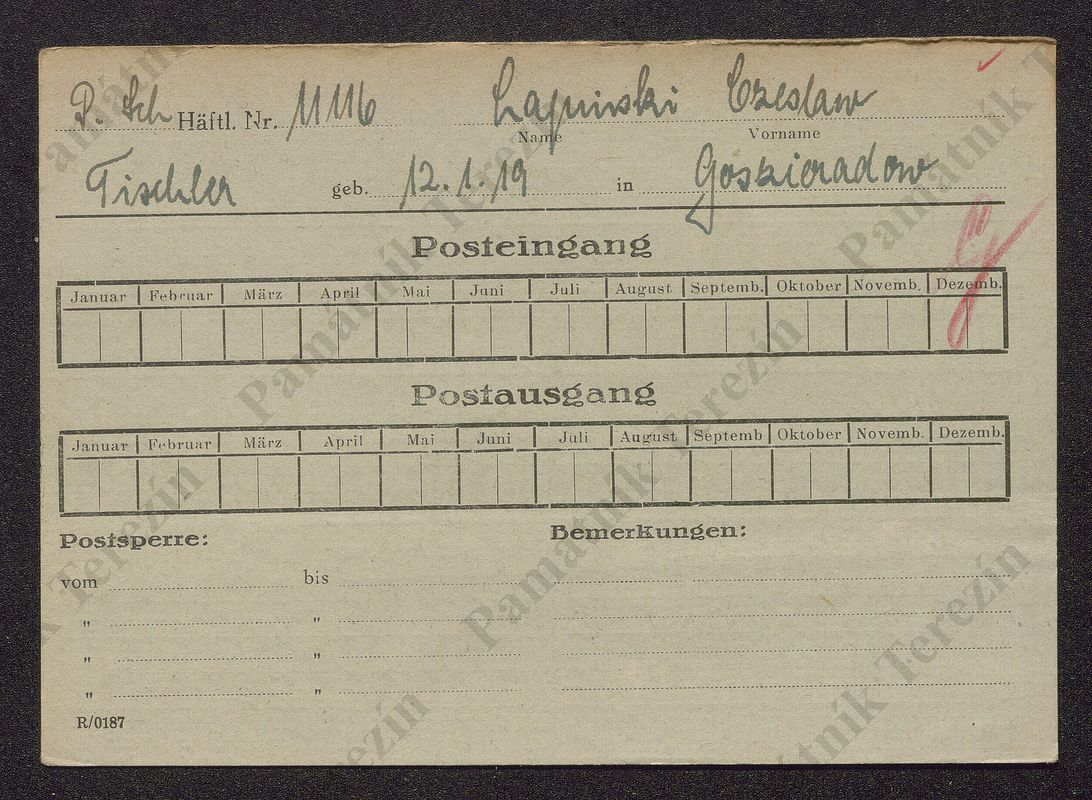 P. Sch Häftl. Nr. 11116 Lapinski Czeslaw
Name Vorname
Tischler geb. 12.1.19 in Goszieradow
Posteingang
Januar Februar März April Mai Juni Juli August Septemb. Oktober Novemb. Dezemb.
Postausgang
Januar Februar März April Mai Juni Juli August Septemb Oktober Novemb. Dezemb.
Postsperre: Bemerkungen:
vom bis
" "
" "
" "
R/0187
Památník Terezín